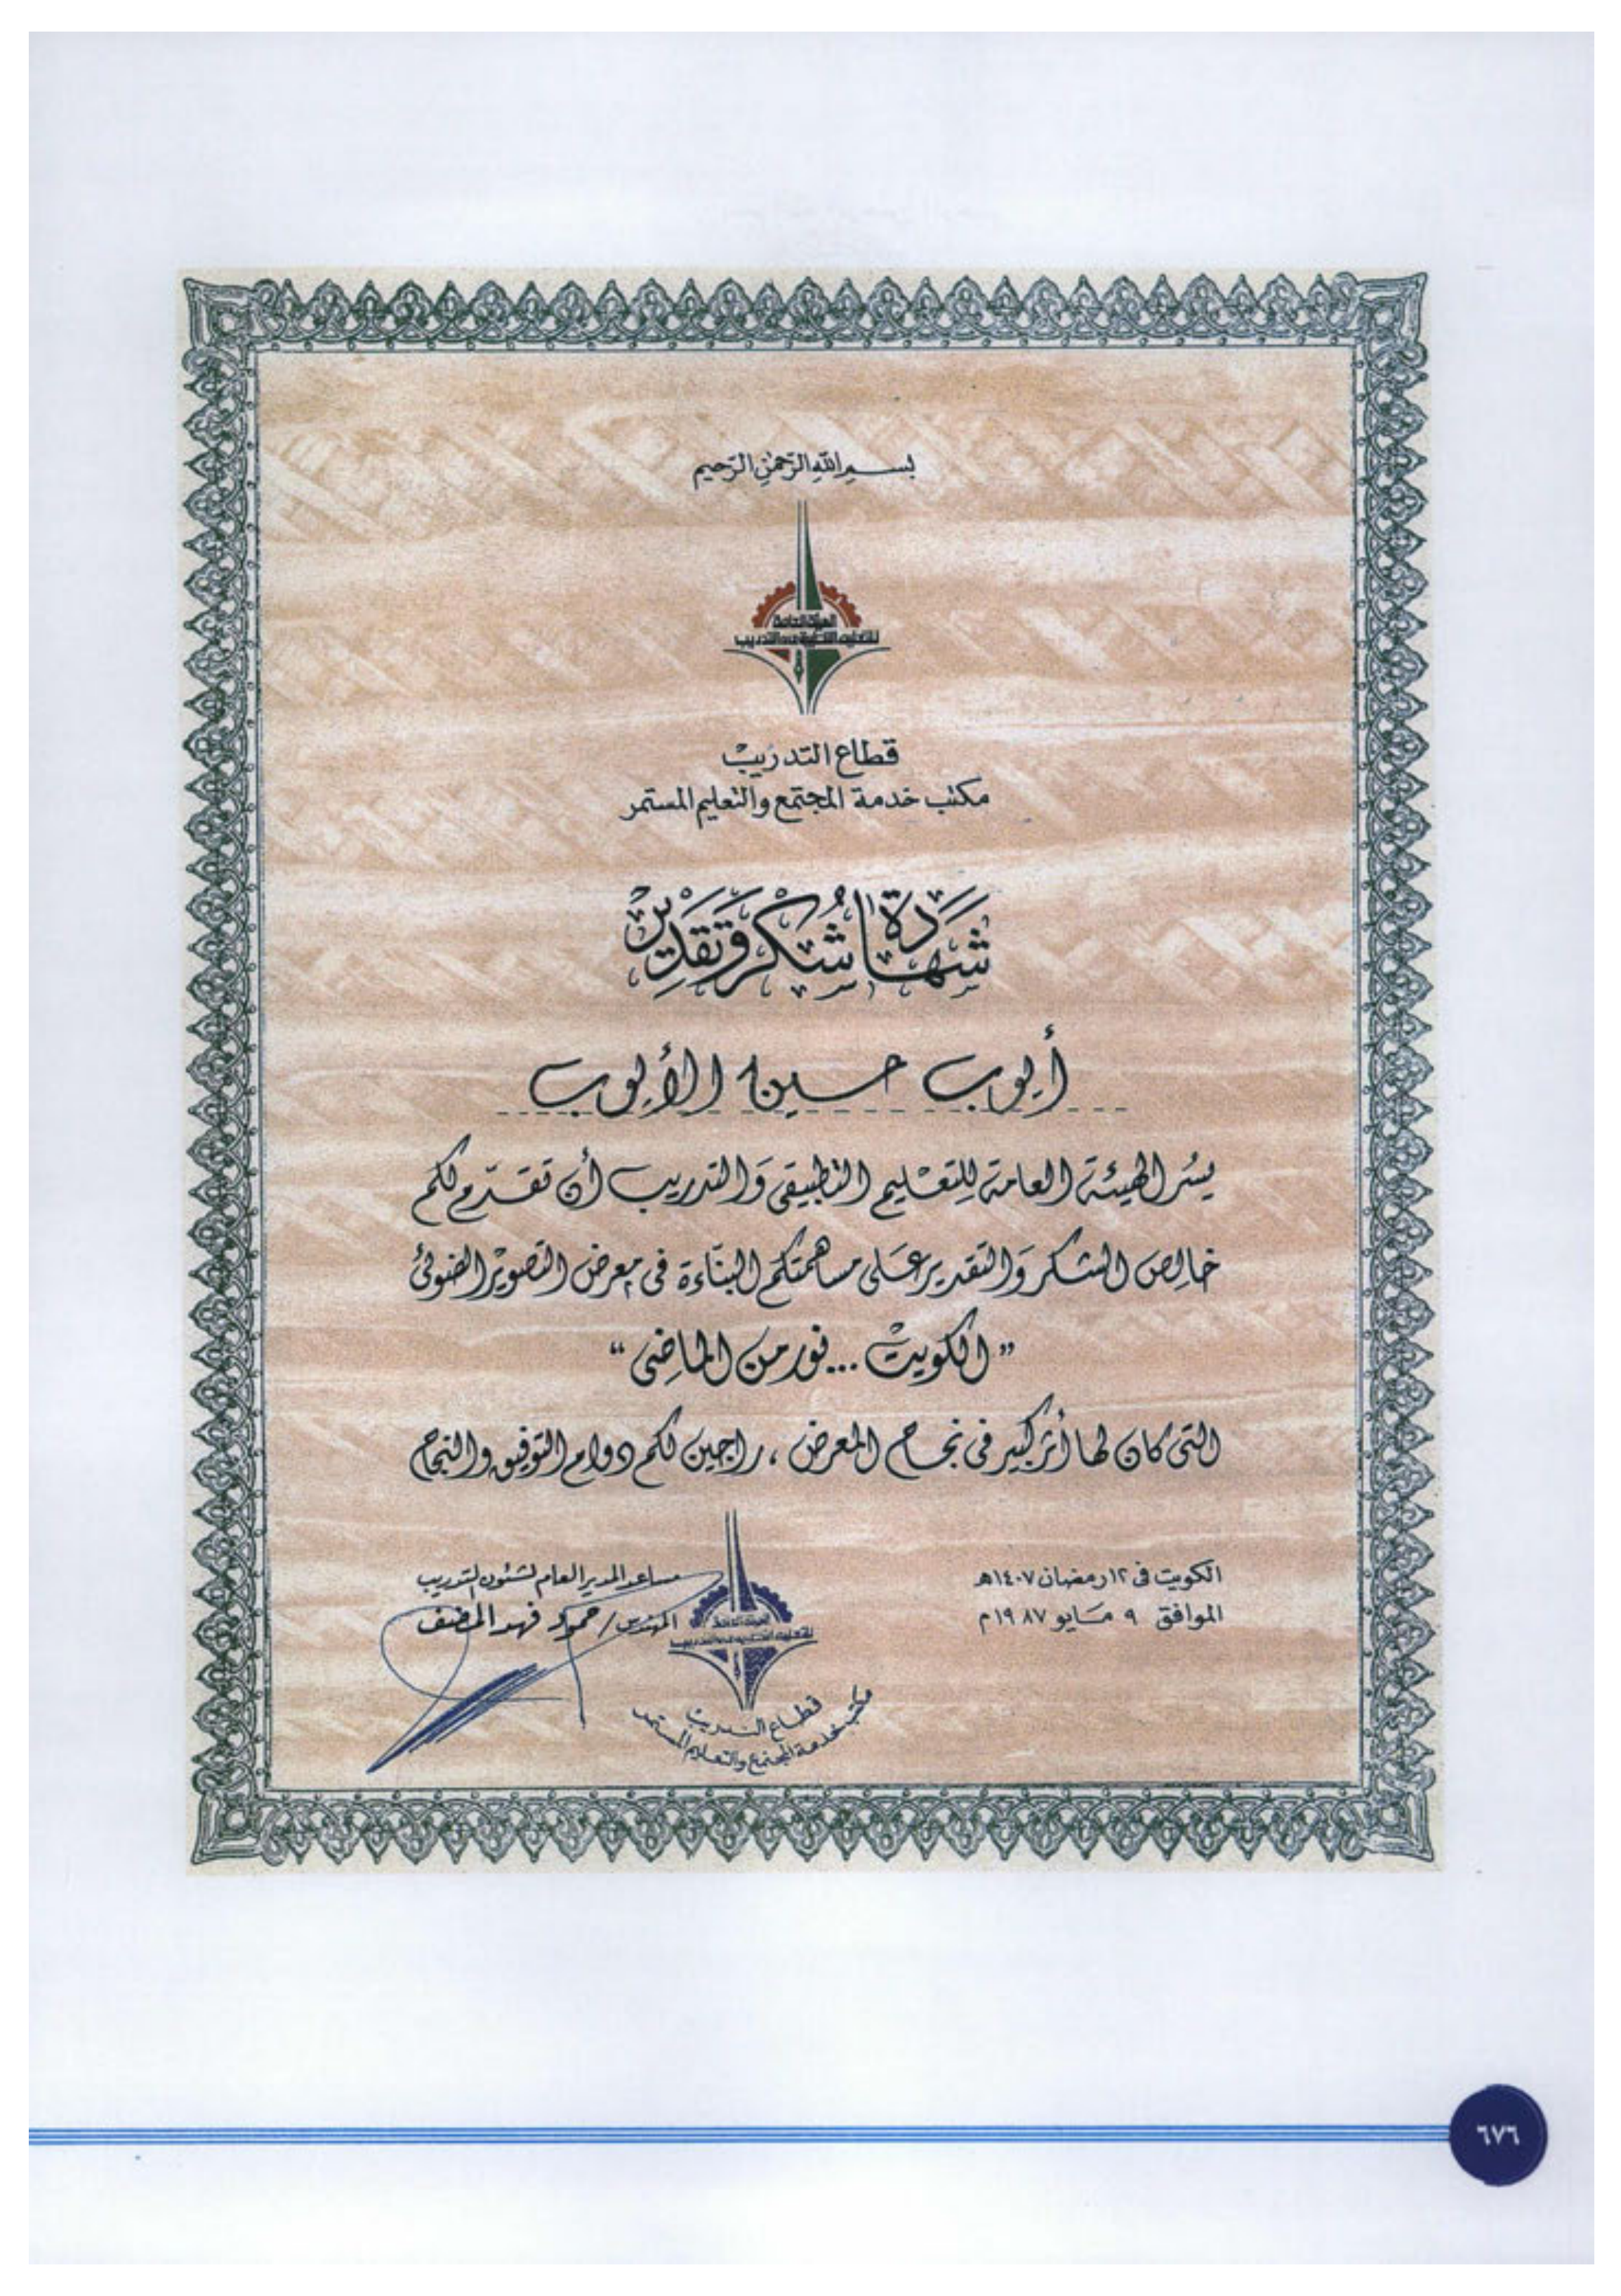 بسم الله الرحمن الرحيم
الهيئة العامة
للتعليم التطبيقي والتدريب
قطاع التدريب
مكتب خدمة المجتمع والتعليم المستمر
شهادة شكر وتقدير
أيوب حسين الأيوب
يسر الهيئة العامة للتعليم التطبيقي والتدريب أن تقدم لكم
خالص الشكر والتقدير على مساهمتكم البناءة في معرض التصوير الضوئي
"الكويت ... نور من الماضي"
التي كان لها أثر كبير في نجاح المعرض ، راجين لكم دوام التوفيق والنجاح
الكويت في ١٢ رمضان ١٤٠٧هـ
الموافق ٩ مايو ١٩٨٧م
مساعد المدير العام لشئون التدريب
المهندس / حمود فهد المضف
الهيئة العامة
للتعليم التطبيقي والتدريب
قطاع التدريب
مكتب خدمة المجتمع والتعليم المستمر
٦٧٦